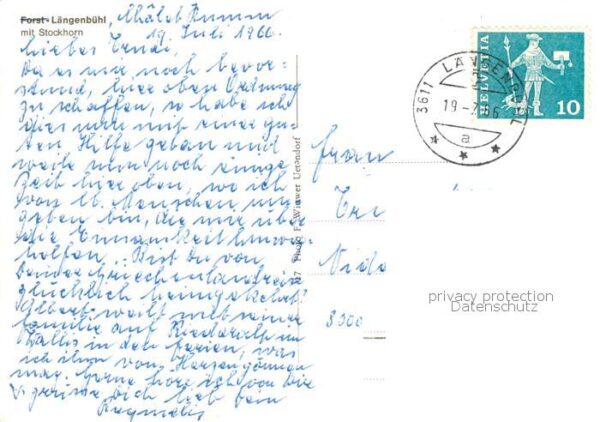 Forst-Längenbühl
mit Stockhorn
19. Juli 1966.
Liebes
Da es mir noch bevor-
stund, hier oben Ordnung
zu schaffen, so habe ich
dies nun mit einer gu-
ten Hilfe getan und
weile nun noch einige
Zeit hier oben, wo ich
von lb. Menschen um-
geben bin, die mir über
die Einsamkeit hinweg-
helfen. Bist Du von
Deiner Griechenlandreise
glücklich heimgekehrt?
Albert weilt mit seiner
Familie auf Riederalp im
Wallis in den Ferien, was
ich ihm von Herzen gönnen
mag. Gerne höre ich von Dir
u. grüsse Dich lieb Dein
117 Photo F. Winzwer Uetendorf
HELVETIA
10
3611 LÄNGENBÜHL
19-7.66
a
Frau
Vida
privacy protection
Datenschutz